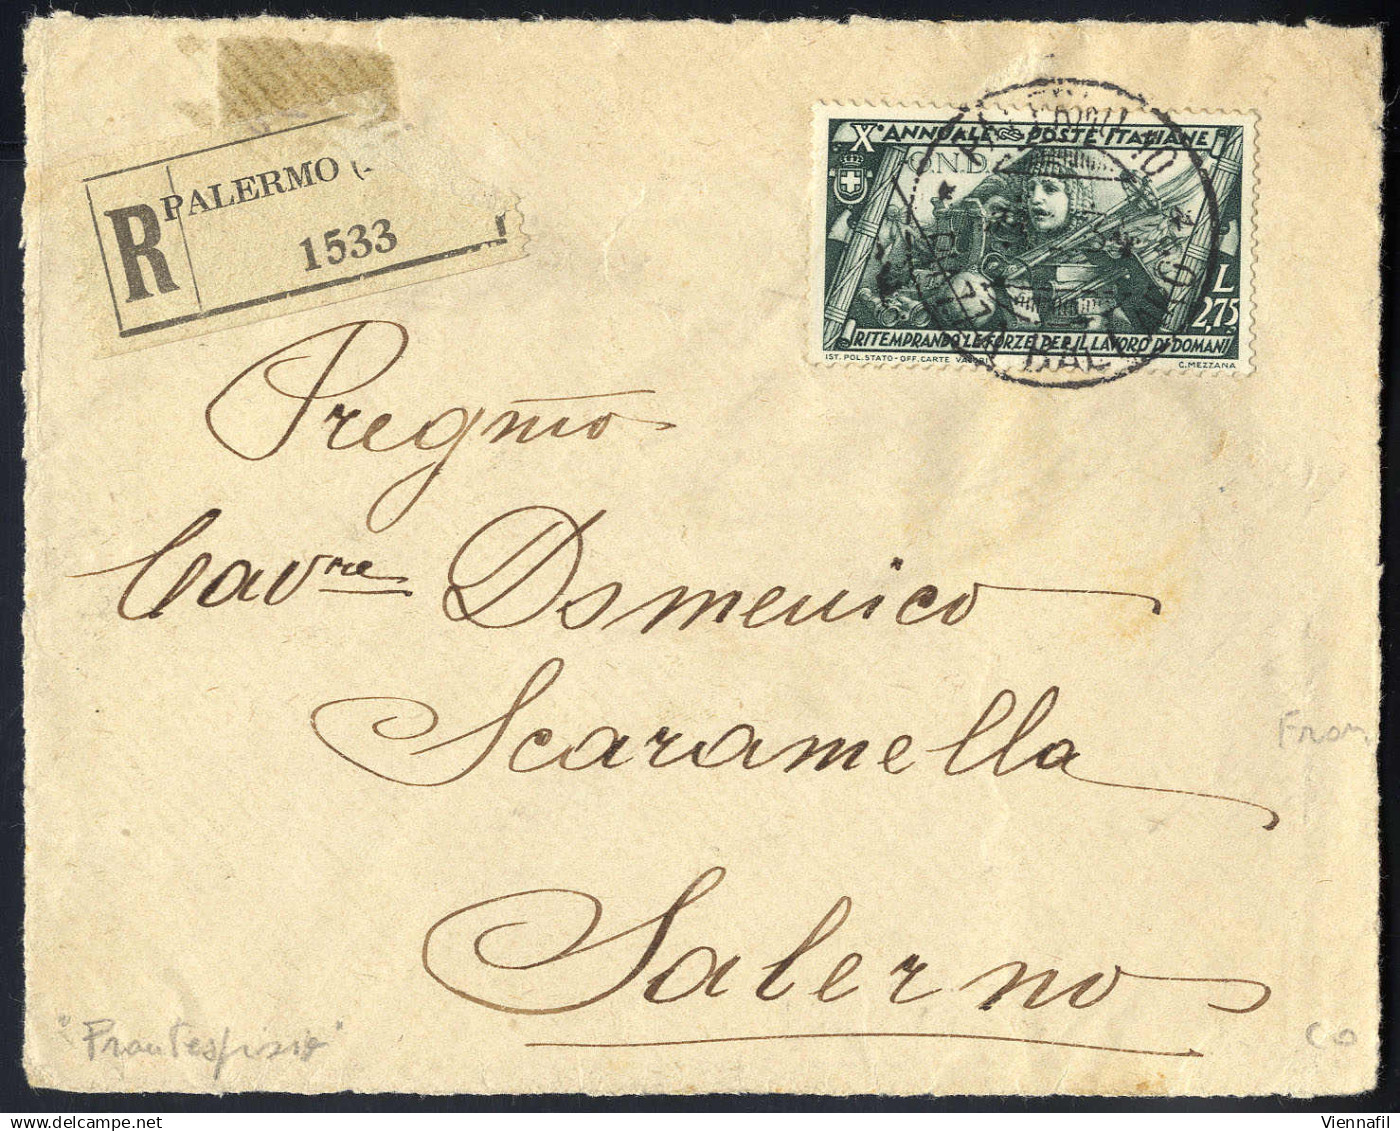 PALERMO (
R
1533
X° ANNUALE POSTE ITALIANE
O.N.D.
L
2,75
RITEMPRANDO LE FORZE PER IL LAVORO DI DOMANI
IST. POL. STATO - OFF. CARTE VALORI
C. MEZZANA
Pregmo
Cavre Domenico
Scaramella
Salerno
Fron
"Frontespizio"
Viennafil